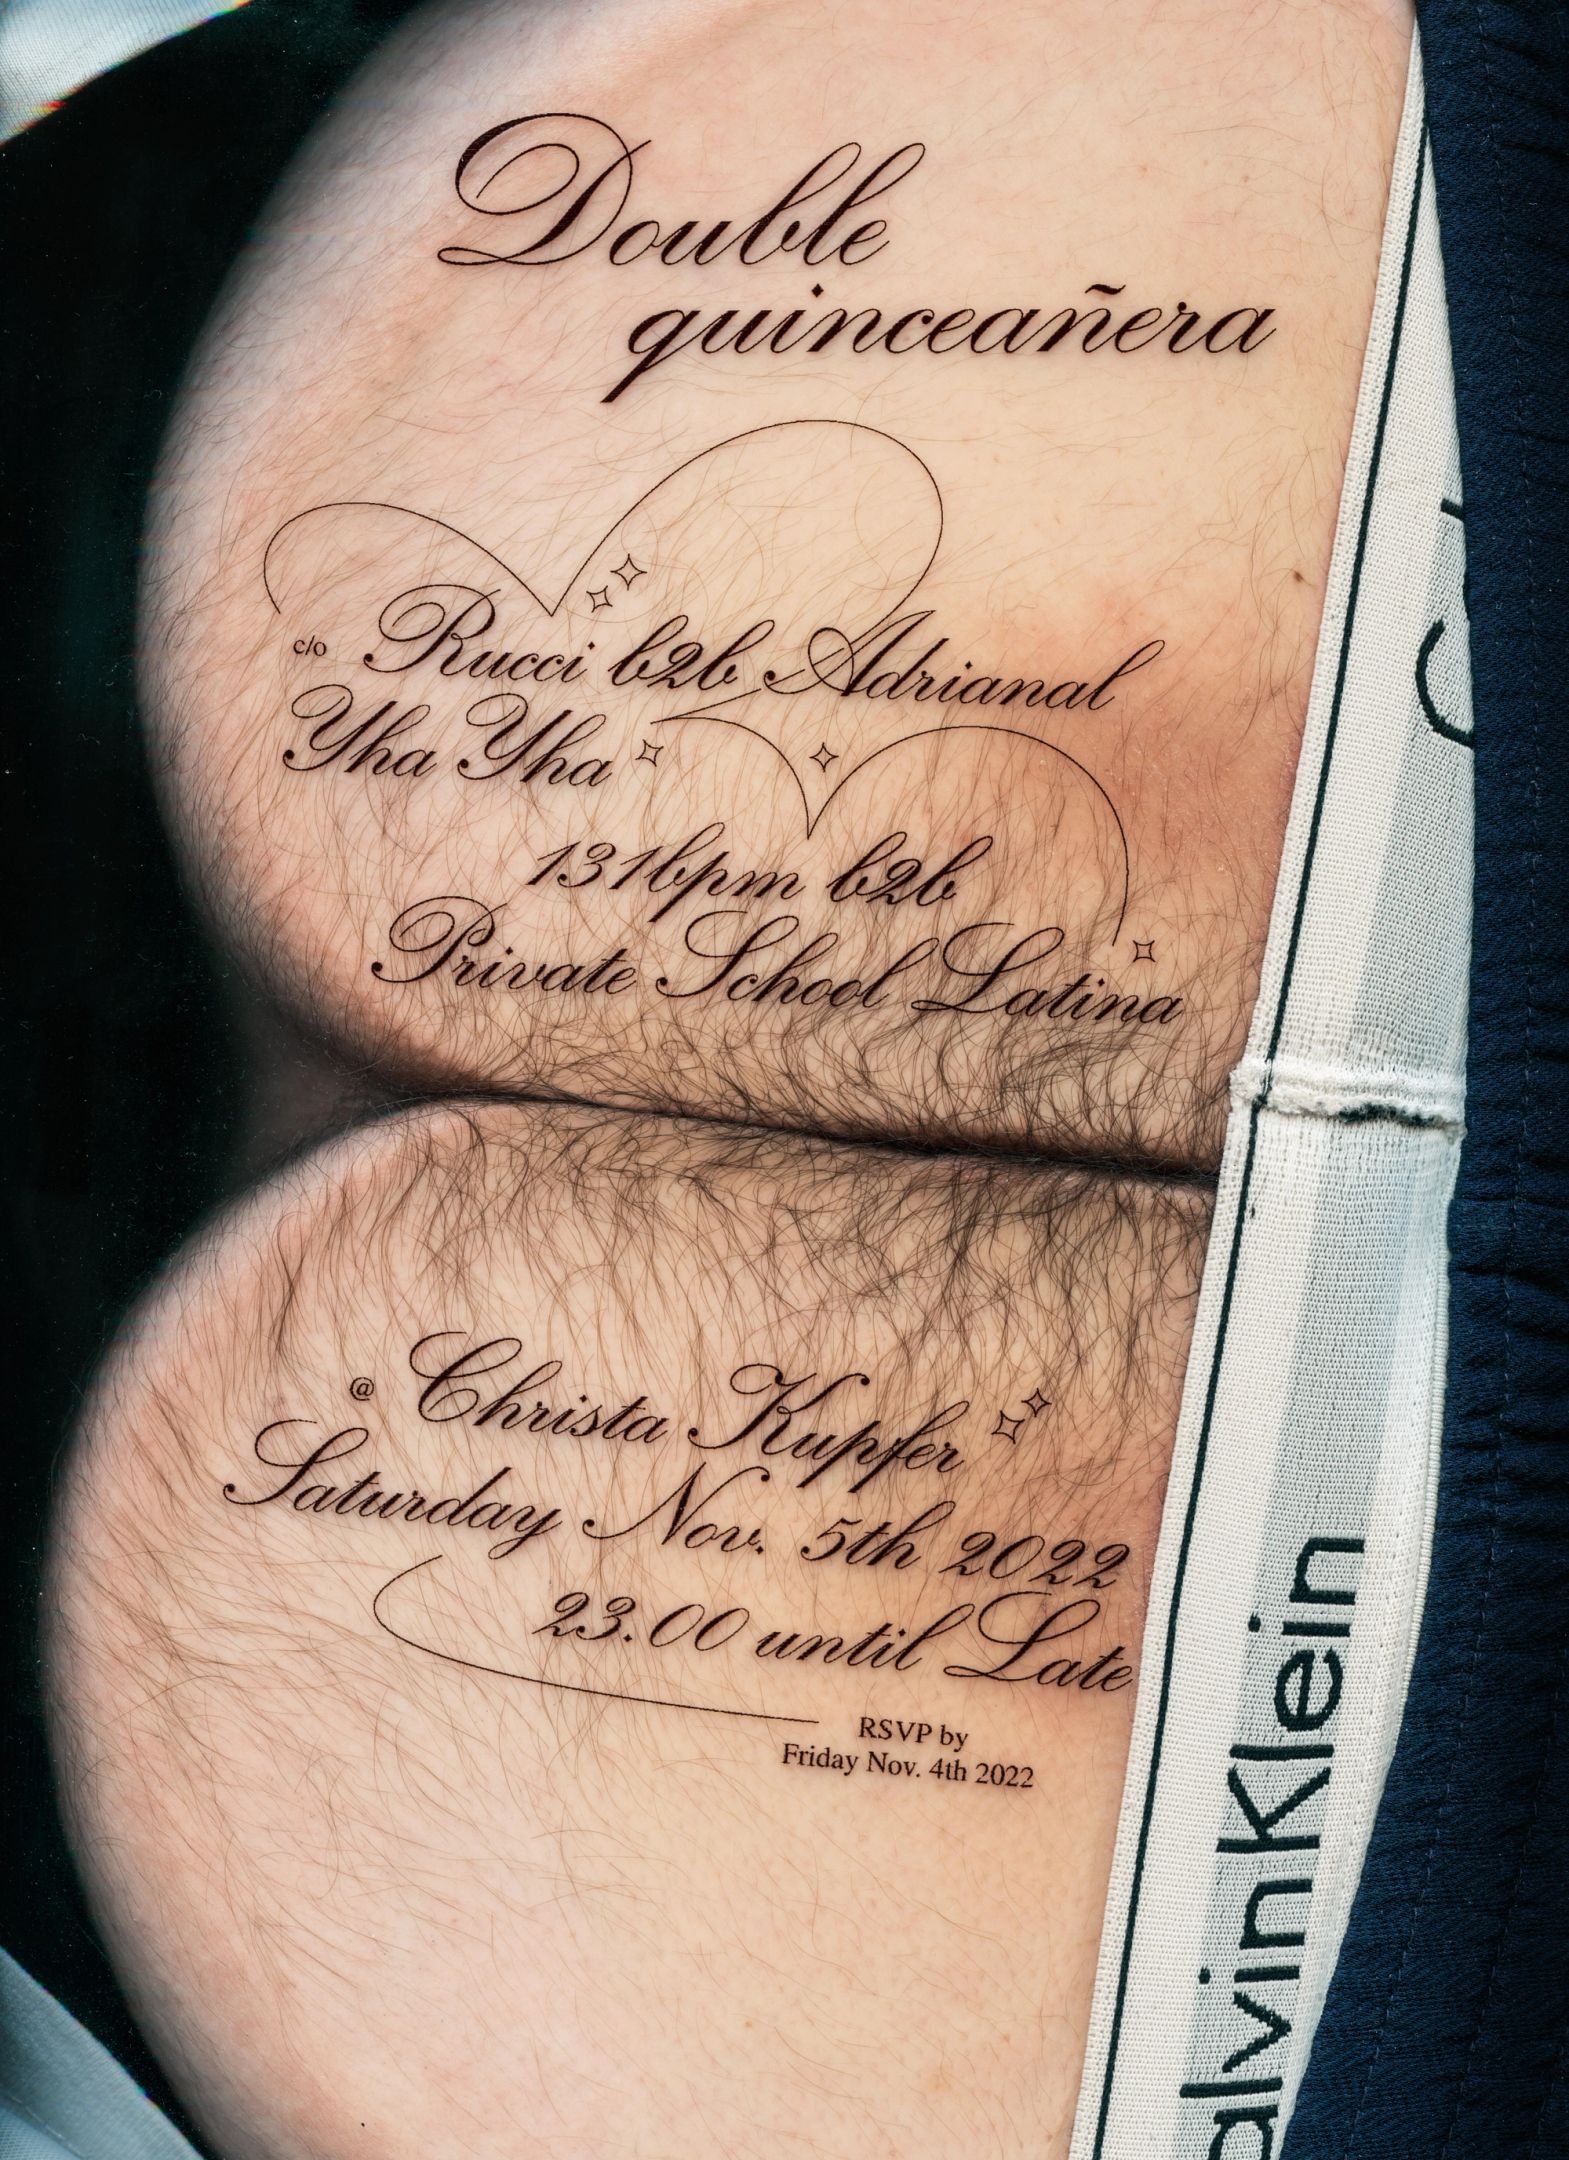 Double
quinceañera
c/o Rucci b2b Adrianal
Yha Yha
131bpm b2b
Private School Latina
@ Christa Kupfer
Saturday Nov. 5th 2022
23.00 until Late
RSVP by
Friday Nov. 4th 2022
alvin Klein